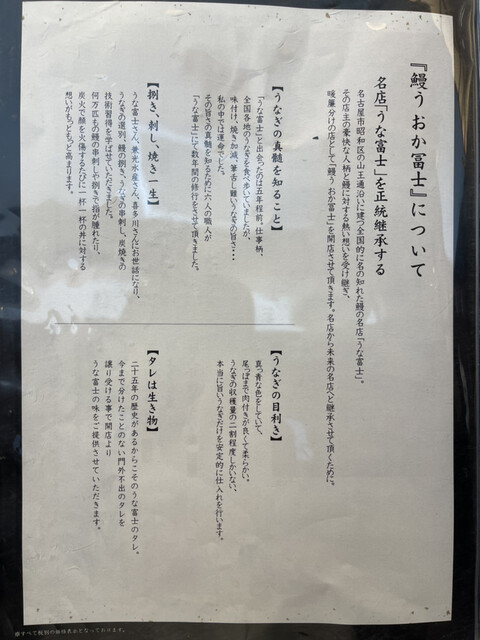 『鰻う おか冨士』について
名店「うな富士」を正統継承する
名古屋市昭和区の山王通沿いに建つ全国的に名の知れた鰻の名店「うな富士」。
その店主の豪快な人柄と鰻に対する熱い想いを受け継ぎ、
暖簾分けの店として「鰻う おか冨士」を開店させて頂きます。名店から未来の名店へと継承させて頂くために。
【うなぎの真髄を知ること】
「うな富士」と出会ったのは五年程前。仕事柄、
全国各地のうなぎを食べ歩いていましたが、
味付け、焼き加減、筆舌し難いうなぎの旨さ・・・
私の中では運命でした。
その旨さの真髄を知るために六人の職人が
「うな富士」にて数年間の修行をさせて頂きました。
【捌き、刺し、焼き一生】
うな富士さん、兼光水産さん、喜多川さんにお世話になり、
うなぎの選別、鰻の捌き、うなぎの串刺し、炭焼きの
技術習得を学ばせていただきました。
何万匹もの鰻の串刺しや捌きで指が腫れたり、
炭火で顔を火傷するたびに一杯一杯の丼に対する
想いがもっともっと高まります。
【うなぎの目利き】
真っ青な色をしていて、
尾っぽまで肉付きが良くて柔らかい。
うなぎの収穫量の二割程度しかいない、
本当に旨いうなぎだけを安定的に仕入れを行います。
【タレは生き物】
二十五年の歴史があるからこそのうな富士のタレ。
今まで分けたことのない門外不出のタレを
譲り受ける事で開店より
うな富士の味をご提供させていただきます。
※すべて税別の価格表示となっております。